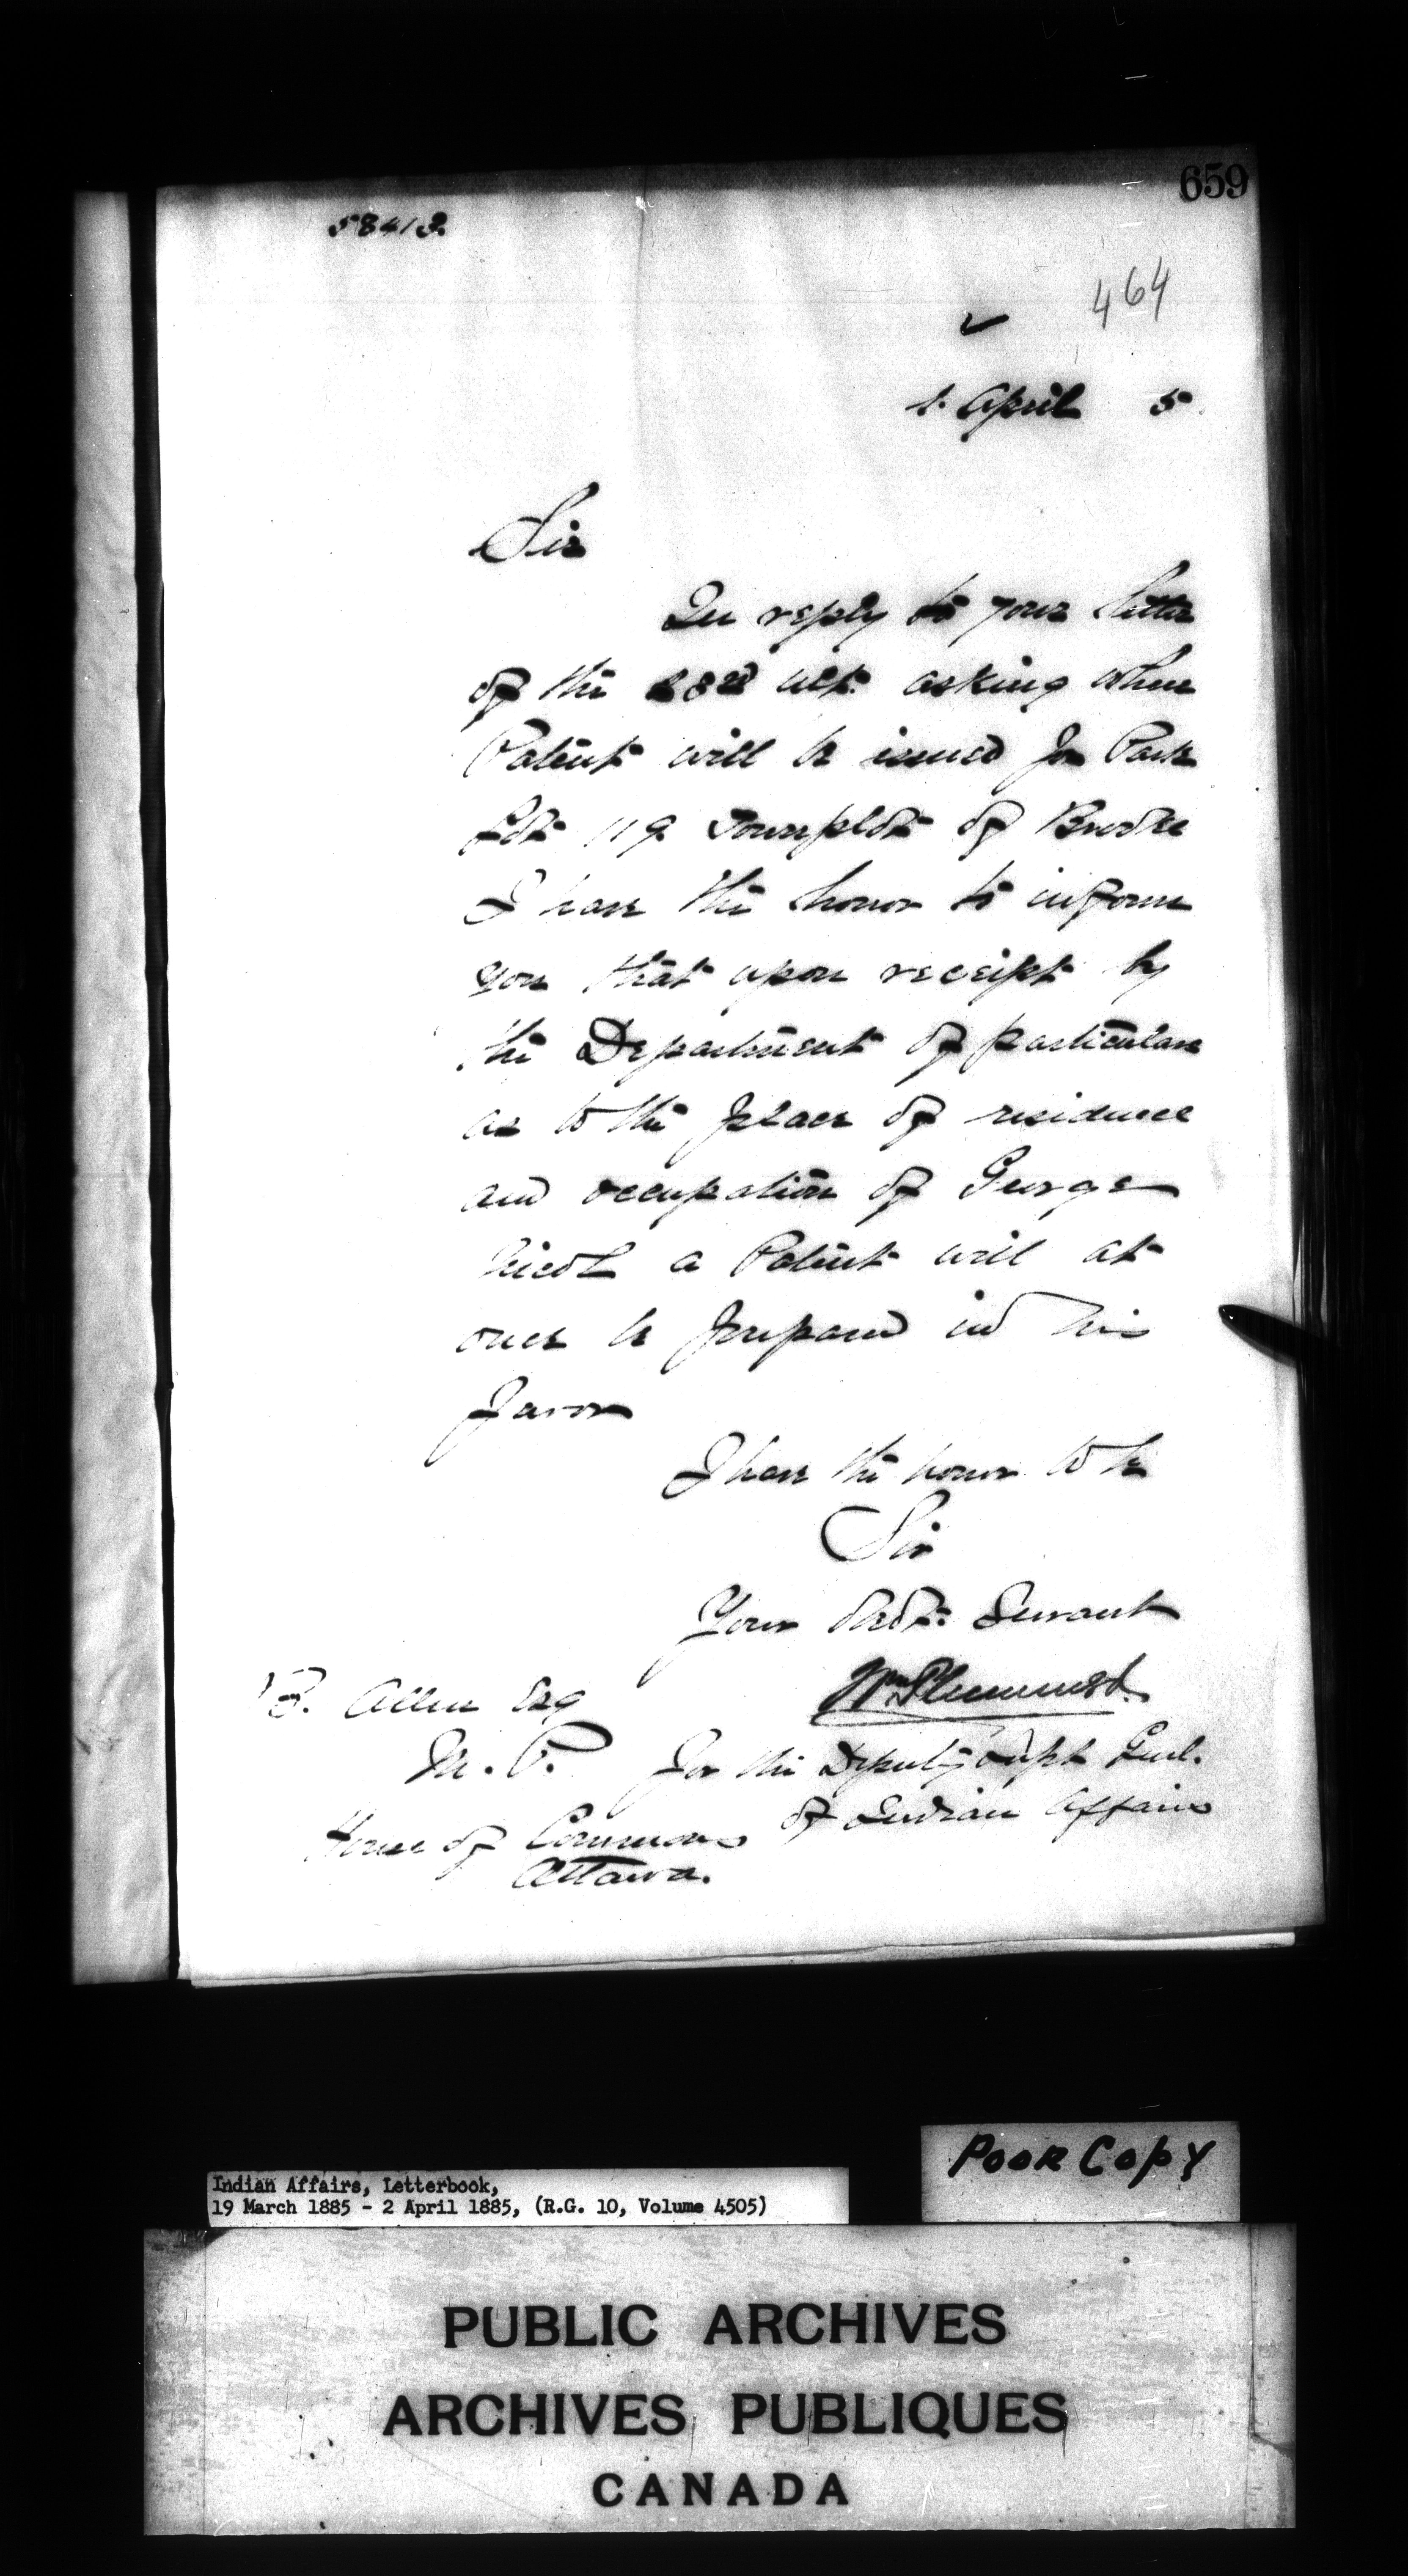 659
58413.
464
1. April 5
Sir
In reply to your letter
of the ult. asking when
Patent will be issued for Park
Lot 119 Townplot of Brooke
I have the honor to inform
you that upon receipt by
the Department of particulars
as to the place of residence
and occupation of George
Nicol a Patent will at
once be prepared in his
favor
I have the honor to be
Sir
Your Obdt. Servant
B. Allen Esq
Wm Plummer
M.P.
for the Deputy Supt Genl.
of Indian Affairs
House of Commons
Ottawa.
POOR COPY
Indian Affairs, Letterbook,
19 March 1885 - 2 April 1885, (R.G. 10, Volume 4505)
PUBLIC ARCHIVES
ARCHIVES PUBLIQUES
CANADA